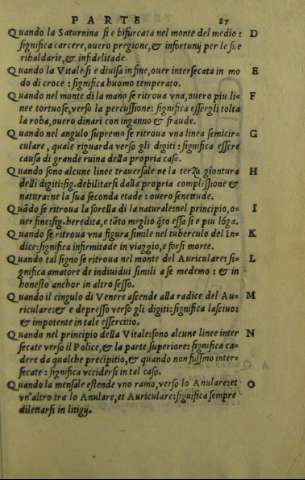 PARTE 87
Quando la Saturnina si e bifurcata nel monte del medio: D
significa carcere, ouero pregione, & infortunij per le sue
ribalderie, & infidelitade.
Quando la Vitale si e diuisa in fine, ouer intersecata in mo E
do di croce: significa huomo temperato.
Quando nel monte di la mano se ritroua vna, ouero piu li= F
nee tortuose, verso la percussione: significa essergli tolta
la roba, ouero dinari con inganno & fraude.
Quando nel angulo supremo se ritroua vna linea semicir= G
culare, quale riguarda verso gli digiti: significa essere
causa di grande ruina della propria casa.
Quando sono alcune linee trauersale ne la terza giontura H
delli digiti: sig. debilitarsi dalla propria complissione &
natura: ne la sua seconda etade: ouero senettude.
Quãdo se ritroua la sorella di la naturale: nel principio, o= I
uer fine: sig. heredita, e tãto meglo q̃to essa si e piu lõga.
Quando se ritroua vna figura simile nel tuberculo del In= K
dice: significa infirmitade in viaggio, e forsi morte.
Quando tal signo se ritroua nel monte del Auriculare: si= L
gnifica amatore de indiuidui simili a se medemo: & in
honesto anchor in altro sesso.
Quando il cingulo di Venere ascende alla radice del Au= M
riculare: & e depresso verso gli digiti: significa lasciuo:
& impotente in tale essercitio.
Quando nel principio della Vitale: sono alcune linee inter N
secate verso il Police, & la parte superiore: significa ca=
dere da qualche precipitio, & quando non fussino inter=
secate: significa vccidersi in tal caso.
Quando la mensale estende vno ramo, verso lo Anulare: et O
vn'altro tra lo Anulare, et Auriculare: significa sempre
dilettarsi in litigij.